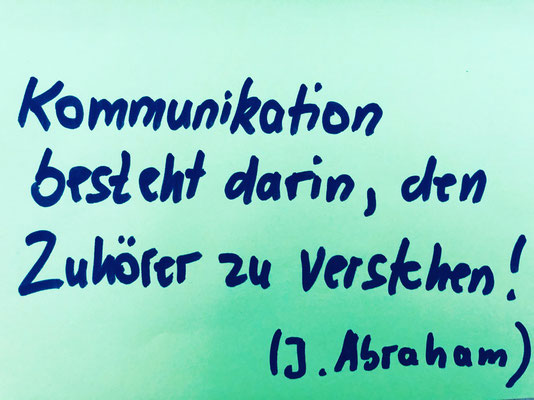 Kommunikation
besteht darin, den
Zuhörer zu verstehen!
(J. Abraham)